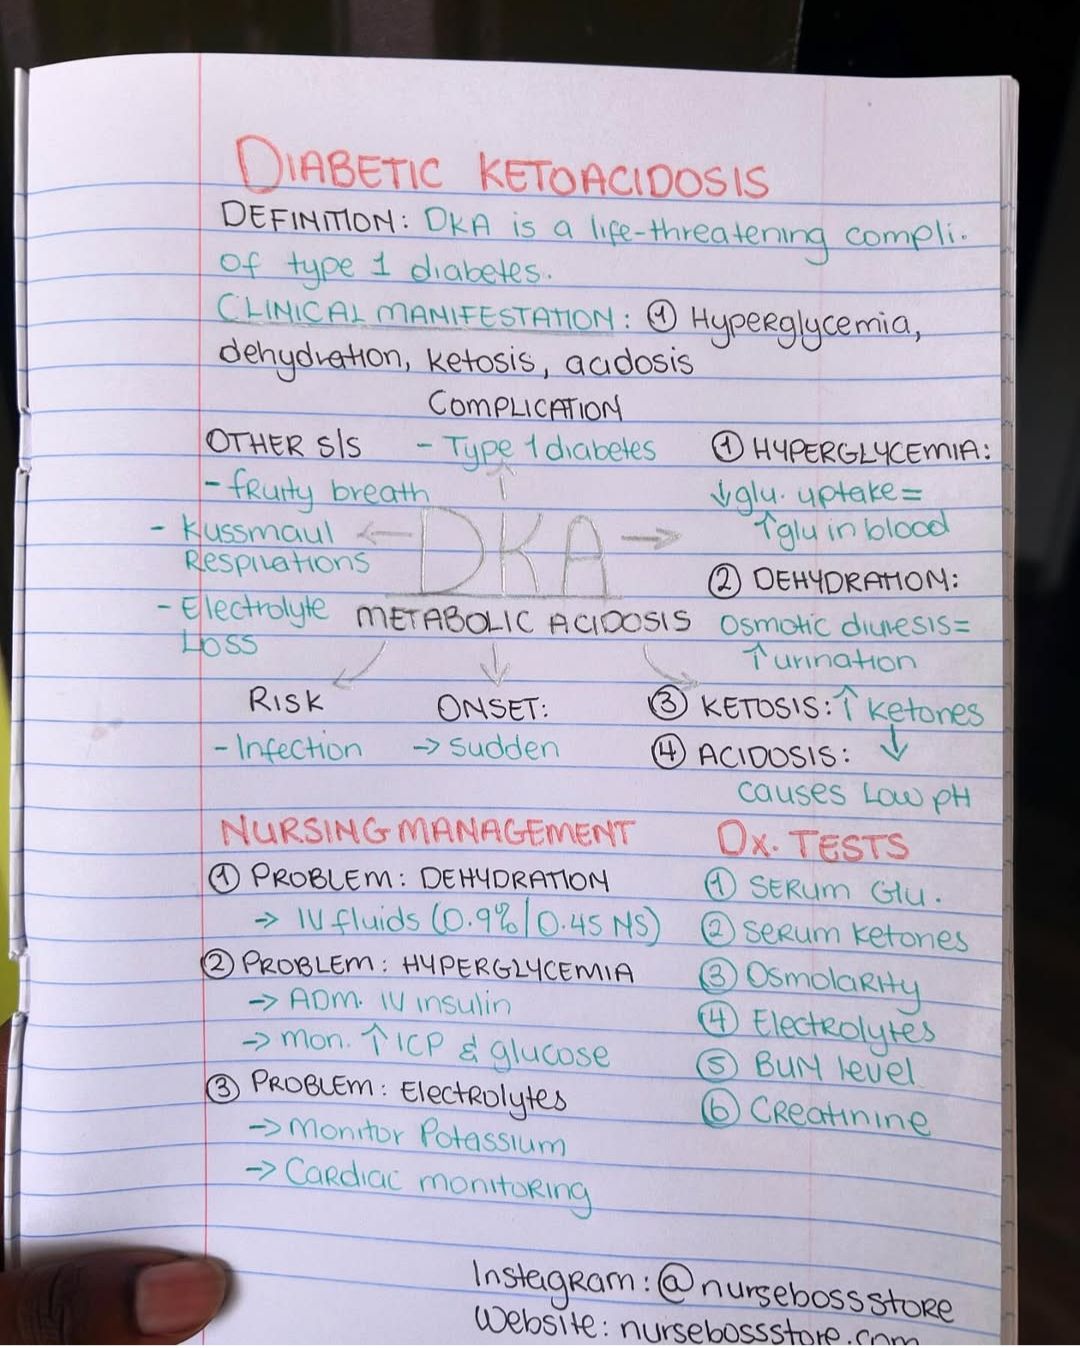 DIABETIC KETOACIDOSIS
DEFINITION: DKA is a life-threatening compli.
of type 1 diabetes.
CLINICAL MANIFESTATION: ① Hyperglycemia,
dehydration, ketosis, acidosis
COMPLICATION
- Type 1 diabetes
OTHER S/S
- fruity breath
- Kussmaul
Respirations
- Electrolyte
Loss
DKA
METABOLIC ACIDOSIS
① HYPERGLYCEMIA:
↓glu. uptake=
↑glu in blood
② DEHYDRATION:
Osmotic diuresis=
↑urination
③ KETOSIS: ↑ ketones
↓
④ ACIDOSIS:
causes Low pH
RISK
- Infection
ONSET:
→ Sudden
NURSING MANAGEMENT
① PROBLEM: DEHYDRATION
→ IV fluids (0.9%/0.45 NS)
② PROBLEM: HYPERGLYCEMIA
→ ADM. IV insulin
→ mon. ↑ICP & glucose
③ PROBLEM: Electrolytes
→ Monitor Potassium
→ Cardiac monitoring
DX. TESTS
① SERUM Glu.
② Serum Ketones
③ Osmolarity
④ Electrolytes
⑤ BUN level
⑥ Creatinine
Instagram: @nursebossstore
Website: nursebossstore.com